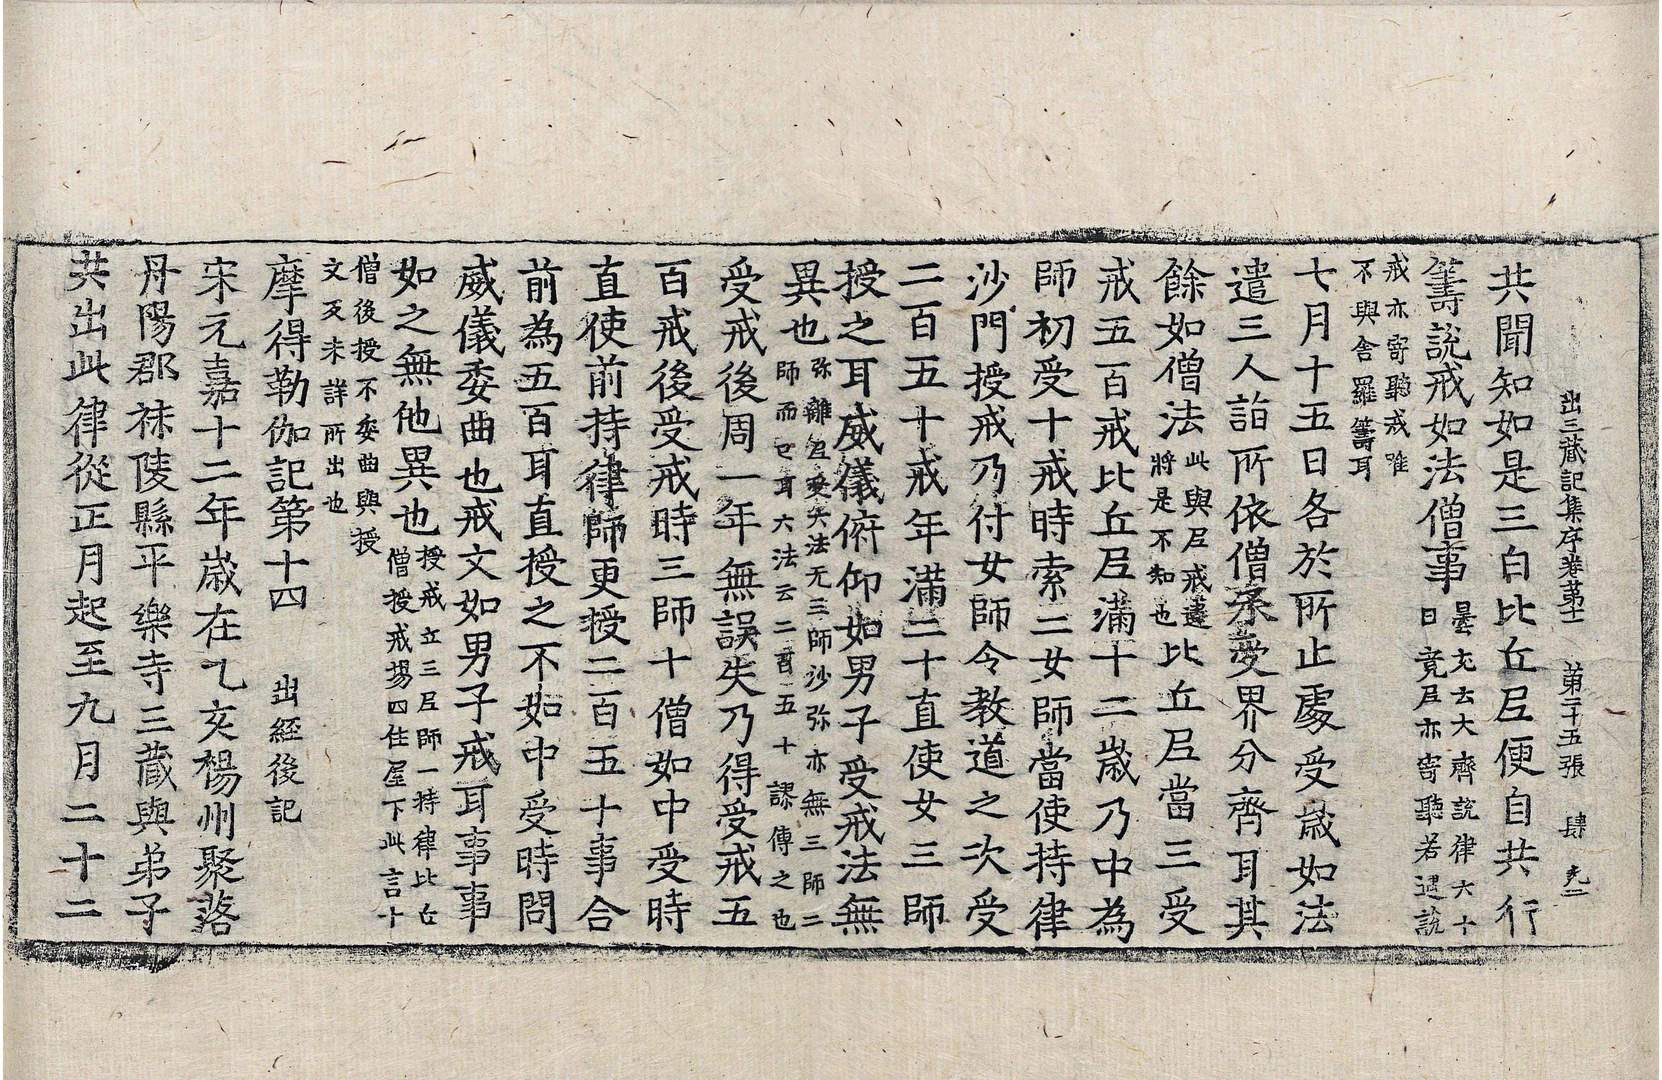 出三藏記集序卷第十一　第二十五張　肆
共聞知如是三白比丘尼便自共行
籌說戒如法僧事曇充云大齊說律六十
日竟尼亦寄聽若過說
戒亦寄聽戒唯
不與舍羅籌耳
七月十五日各於所止處受歲如法
遣三人詣所依僧承受界分齊耳其
餘如僧法此與尼戒違
將是不知也比丘尼當三受
戒五百戒比丘尼滿十二歲乃中為
師初受十戒時索二女師當使持律
沙門授戒乃付女師令教道之次受
二百五十戒年滿二十直使女三師
授之耳威儀俯仰如男子受戒法無
異也弥離尼受六法无三師沙弥亦無三師二
師而已耳六法云二百五十謬傳之也
受戒後周一年無誤失乃得受戒五
百戒後受戒時三師十僧如中受時
直使前持律師更授二百五十事合
前為五百耳直授之不如中受時問
威儀委曲也戒文如男子戒耳事事
如之無他異也授戒立三尼師一持律比丘
僧授戒場四住屋下此言十
僧後授不委曲與授
文反未詳所出也
摩得勒伽記第十四　出經後記
宋元嘉十二年歲在乙亥楊州聚落
丹陽郡秣陵縣平樂寺三藏與弟子
共出此律從正月起至九月二十二